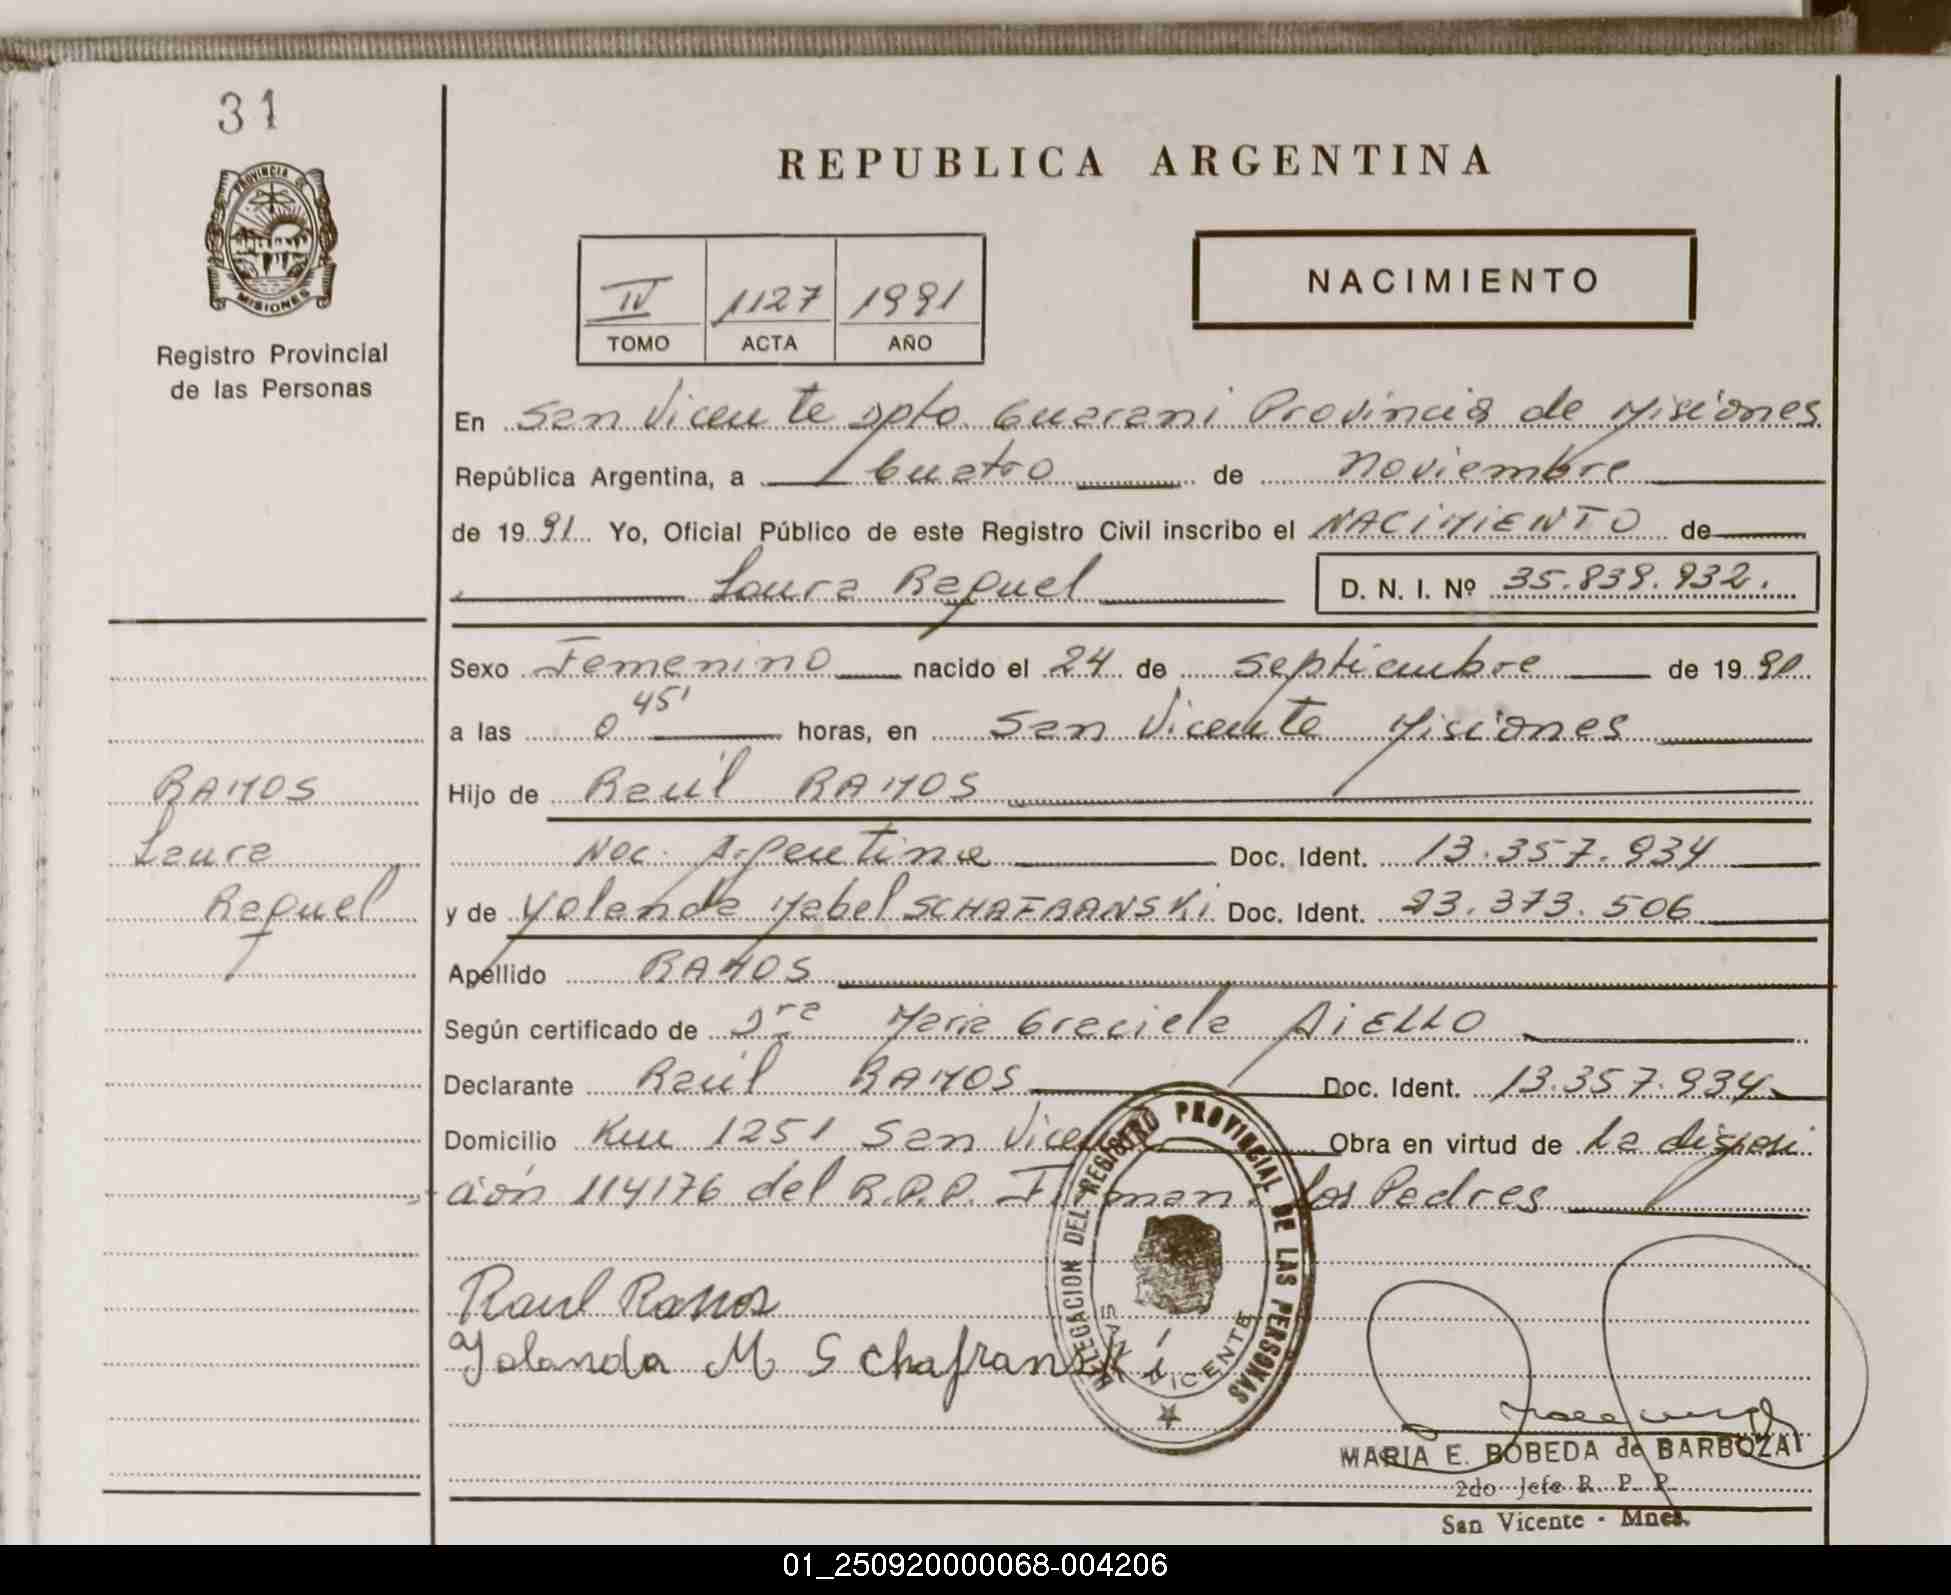 31
PROVINCIA DE
MISIONES
Registro Provincial
de las Personas
REPUBLICA ARGENTINA
IV 1127 1991
TOMO ACTA AÑO
NACIMIENTO
En San Vicente Dpto. Guarani Provincia de Misiones
República Argentina, a Cuatro de Noviembre
de 1991. Yo, Oficial Público de este Registro Civil inscribo el NACIMIENTO de
Laura Raquel D. N. I. Nº 35.839.932.
Sexo Femenino nacido el 24 de Septiembre de 19
a las 0 45' horas, en San Vicente Misiones
RAMOS
Laura
Raquel
Hijo de Raúl RAMOS
Nac. Argentina Doc. Ident. 13.357.934
y de Yolanda Mabel SCHAFRANSKi Doc. Ident. 23.373.506
Apellido RAMOS
Según certificado de Dra María Graciela AiELLO
Declarante Raúl RAMOS Doc. Ident. 13.357.934
Domicilio Km 1251 San Vicente Obra en virtud de la disposi
ción 114176 del R.P.P. Firman los Padres
Raul Ramos
Yolanda M Schafranski
DELEGACION DEL REGISTRO PROVINCIAL DE LAS PERSONAS
SAN VICENTE
MARIA E. BOBEDA de BARBOZA
2do Jefe R. P. P.
San Vicente - Mnes.
01_250920000068-004206